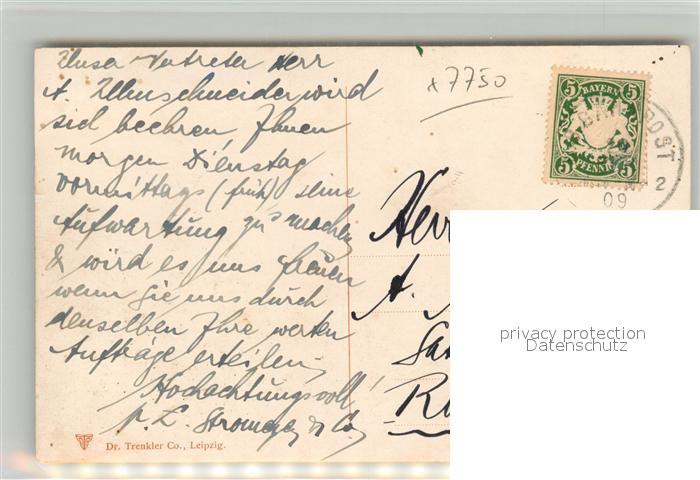 Unser Vertreter Herr
A. Zehnschneider wird
sich beehren Ihnen
morgen Dienstag
vormittags (früh) seine
Aufwartung zu machen
& wird es uns freuen
wenn Sie uns durch
denselben Ihre werten
Aufträge erteilen.
Hochachtungsvoll!
p. L. Stromeyer & Co.
Dr. Trenkler Co., Leipzig.
x 7750
5 BAYERN 5
5 PFENNIG 5
POST
2
09
Herr
A.
privacy protection
Datenschutz